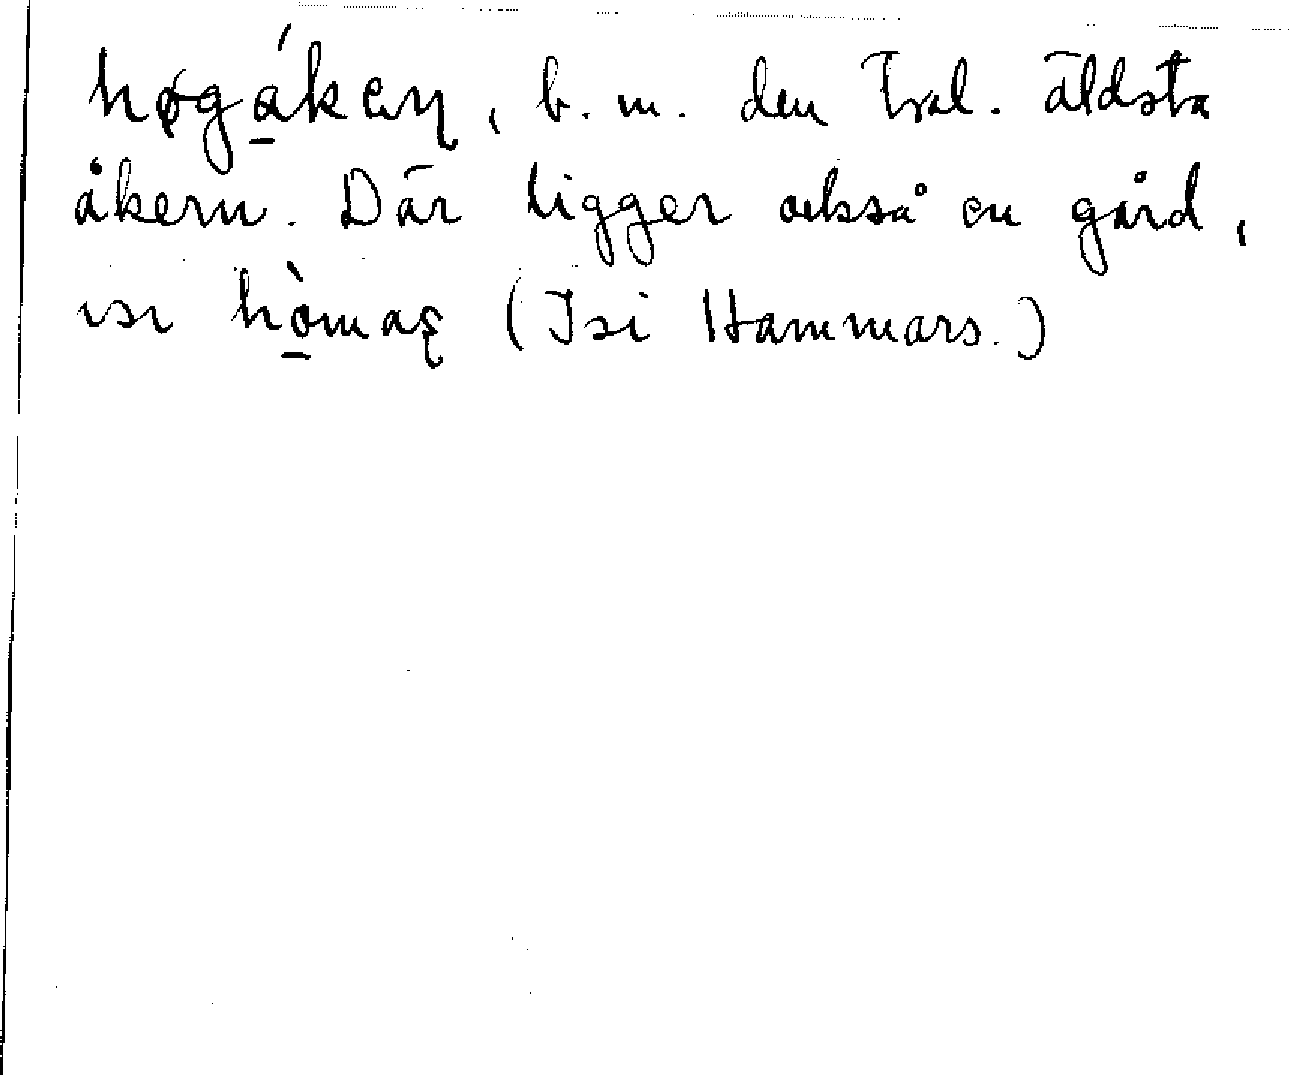 høgákeɳ, b. m. den trol. äldsta
åkern. Där ligger också en gård,
ısı hòmaʂ (Isi Hammars.)